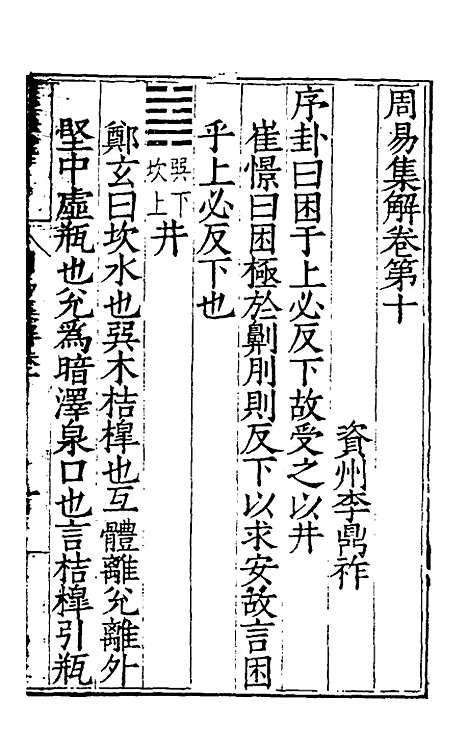 周易集解卷第十
資州李鼎祚
序卦曰困于上必反下故受之以井
崔憬曰困極於劓刖則反下以求安故言困
乎上必反下也
䷯ 巽下坎上 井
鄭玄曰坎水也巽木桔橰也互體離兊離外
堅中虛瓶也兊為暗澤泉口也言桔橰引瓶